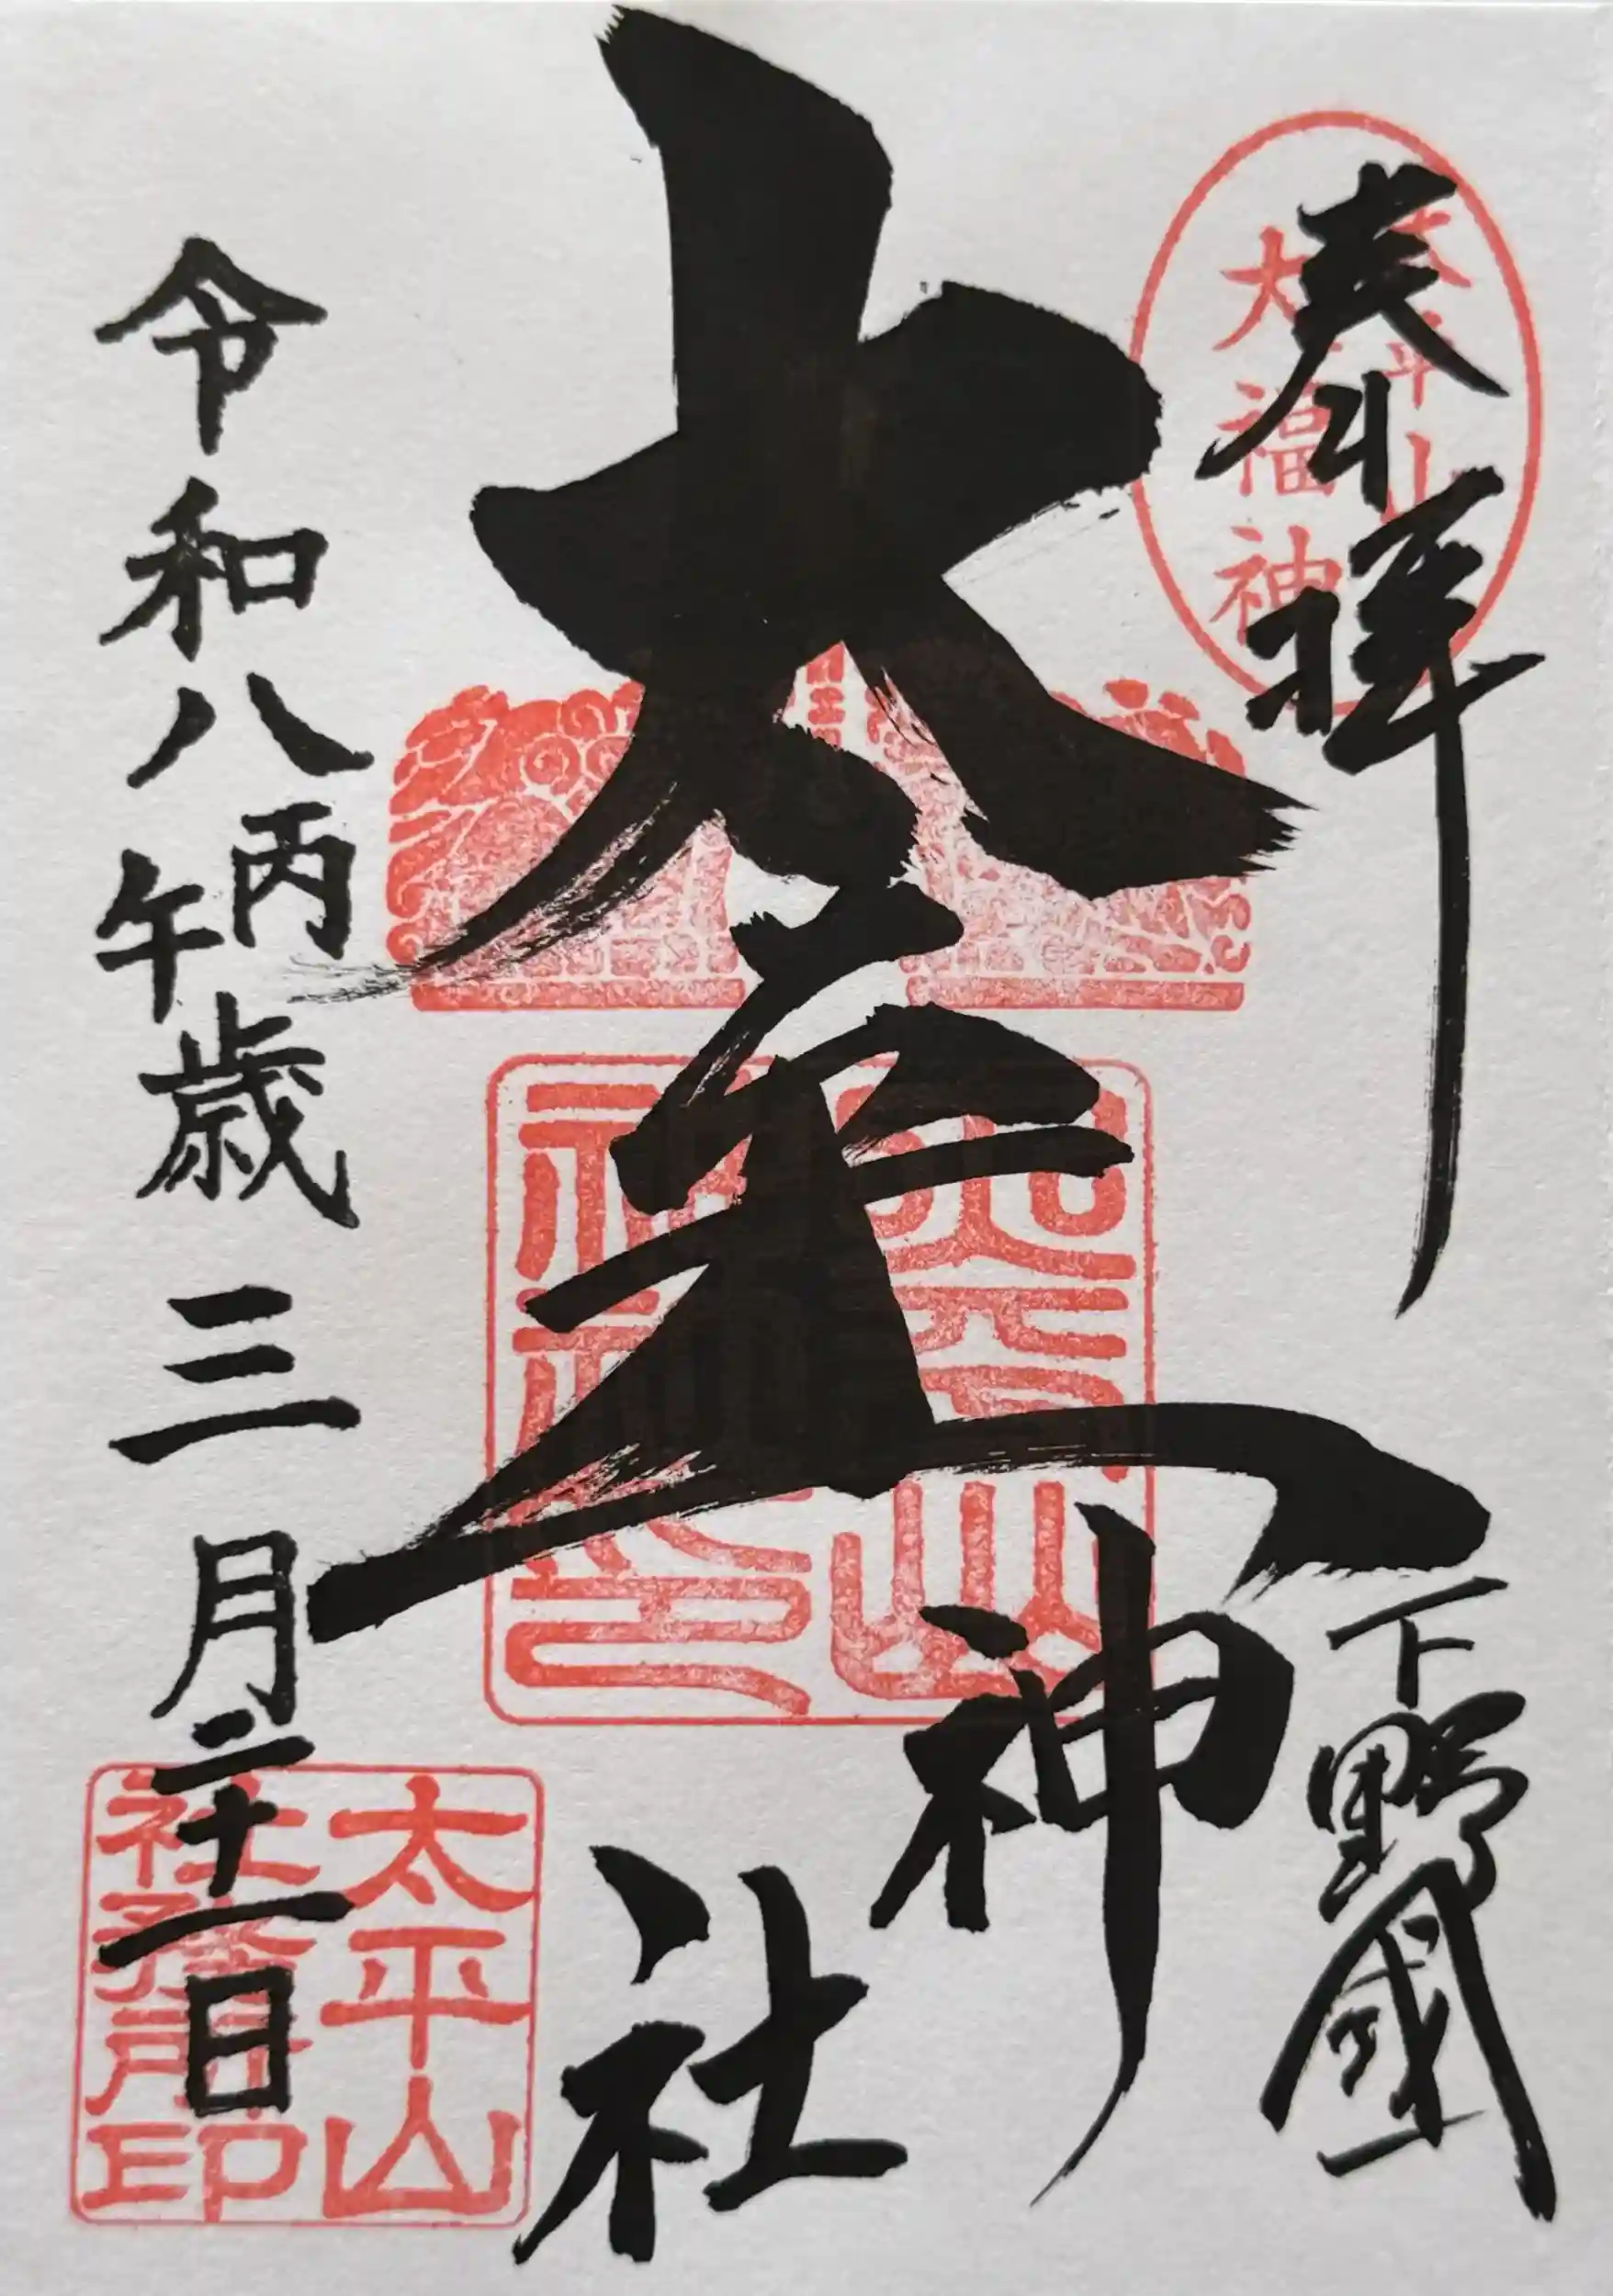 奉拝
下野國
太平山神社
令和八丙午歳三月二十一日
太平山
大福神
太平山
神社印
太平山
社務所印